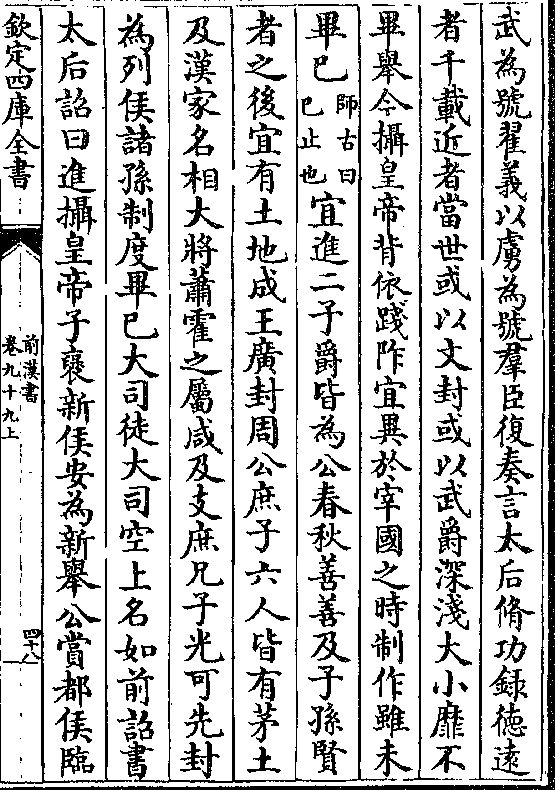 武為號翟義以虜為號羣臣復奏言太后脩功録徳遠
者千載近者當世或以文封或以武爵深淺大小靡不
畢舉今攝皇帝背依踐阼宜異於宰國之時制作雖未
畢已師古曰已止也宜進二子爵皆為公春秋善善及子孫賢
者之後宜有土地成王廣封周公庶子六人皆有茅土
及漢家名相大將蕭霍之屬咸及支庶兄子光可先封
為列侯諸孫制度畢已大司徒大司空上名如前詔書
太后詔曰進攝皇帝子襃新侯安為新舉公賞都侯臨
欽定四庫全書
前漢書
卷九十九上
四十八